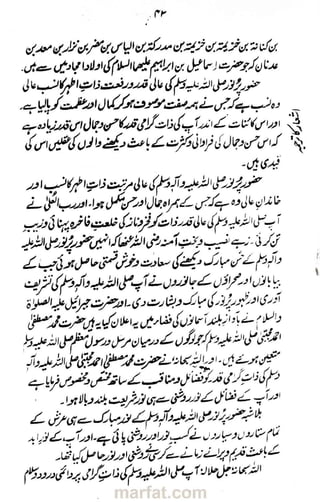 ۴۲
بن کنانہ بن خزیمتہ بن خزیمتہ بن مدرکتہ بن الیاس بن مضر بن نزار بن معد بن
عدنان کہ جو حضرت اسماعیل بن ابراہیم علیہما السلام کی اولاد امجاد میں سے ہیں۔
حضور پر نور صلی اللہ علیہ وسلم کی عالی قدر و رفعت ذات اطہر کا نسب عالی
وہ نسب ہے کہ جس نے ہمہ صفت موصوف ہو کر کمال اور عظمت کو پا لیا ہے۔
اشعار کا ترجمہ
اور اس کائنات کے اندر آپ کی ذات گرامی قدر کا حسن و جمال اس قدر زیادہ ہے
کہ اس حسن و جمال کی فراوانی و کثرت کے باعث دیکھنے والوں کی عقلیں اس کی
قیدی ہیں۔
حضور پر نور صلی اللہ علیہ وآلہ وسلم کی عالی مرتبت ذات اطہر کا نسب اور
خاندان عالی وہ ہے کہ جس کے ہمراہ جمال اور حسن مکمل ہوا۔ اور رب العلیٰ نے
آپ صلی اللہ علیہ وسلم کی عالی قدر ذات کو فخر و ناز کی خلعت فاخرہ پہنائی و زیب
تن کرائی۔ زہے نصیب و بخت آمنہ رضی اللہ عنہا کہ انہیں حضور پر نور صلی اللہ علیہ
وآلہ وسلم کے حسن مبارک دیکھنے کی سعادت و خوش قسمتی حاصل ہوئی جب کے
بیابانوں اور صحراؤں کے جانوروں نے آپ صلی اللہ علیہ وآلہ وسلم کی تشریف
آوری اور ظہور پر نور کی مبارک و بشارت دی۔ اور حضرت جبرائیل علیہ الصلوٰۃ
والسلام نے بآواز بلند آسمانوں کی فضاء میں یہ اعلان کیا یہ ہیں حضرت محمد مصطفیٰ
احمد مجتبیٰ صلی اللہ علیہ وسلم کہ جو لوگوں کے درمیان مرسل و رسول معظم صلی اللہ علیہ وسلم
متعین ہوئے ہیں۔ اور اللہ سبحانہ نے حضرت محمد مصطفیٰ احمد مجتبیٰ صلی اللہ علیہ وآلہ
وسلم کی ذات گرامی قدر کو فضائل و مناقب کے ساتھ مختص و مخصوص فرمایا ہے
اور آپ کے فضائل کے نور و روشنی سے ہی نور شریعت بلند و بالا ہوا۔
بلاشبہ حضور پر نور صلی اللہ علیہ وآلہ وسلم کے نور مبارک سے ہی عرش کے
تمام ستاروں و سیاروں نے کسب نور اور روشنی پائی ہے۔ اور آپ کے نور ابد
کے باعث قدیم و پرانے زمانے سے کرسی نے روشنی اور نور حاصل کیا تھا۔
اللہ سبحانہ جل جلالہ آپ صلی اللہ علیہ وسلم کی ذات گرامی پر دائمی درود و سلام
marfat.com